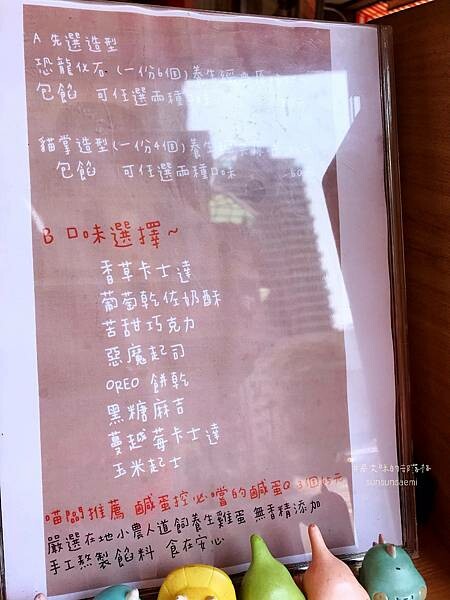 A 先選造型
恐龍化石 (一份6個) 養生
包餡 可任選兩種
貓掌造型 (一份4個) 養生
包餡 可任選兩種口味
B 口味選擇~
香草卡士達
葡萄乾佐奶酥
苦甜巧克力
惡魔起司
OREO 餅乾
黑糖麻吉
蔓越莓卡士達
玉米起士
喵闆推薦 鹹蛋控必嚐的鹹蛋Q
嚴選在地小農人道飼養生雞蛋 無香精添加
手工熬製餡料 食在安心
的部落格
sunsundaemi